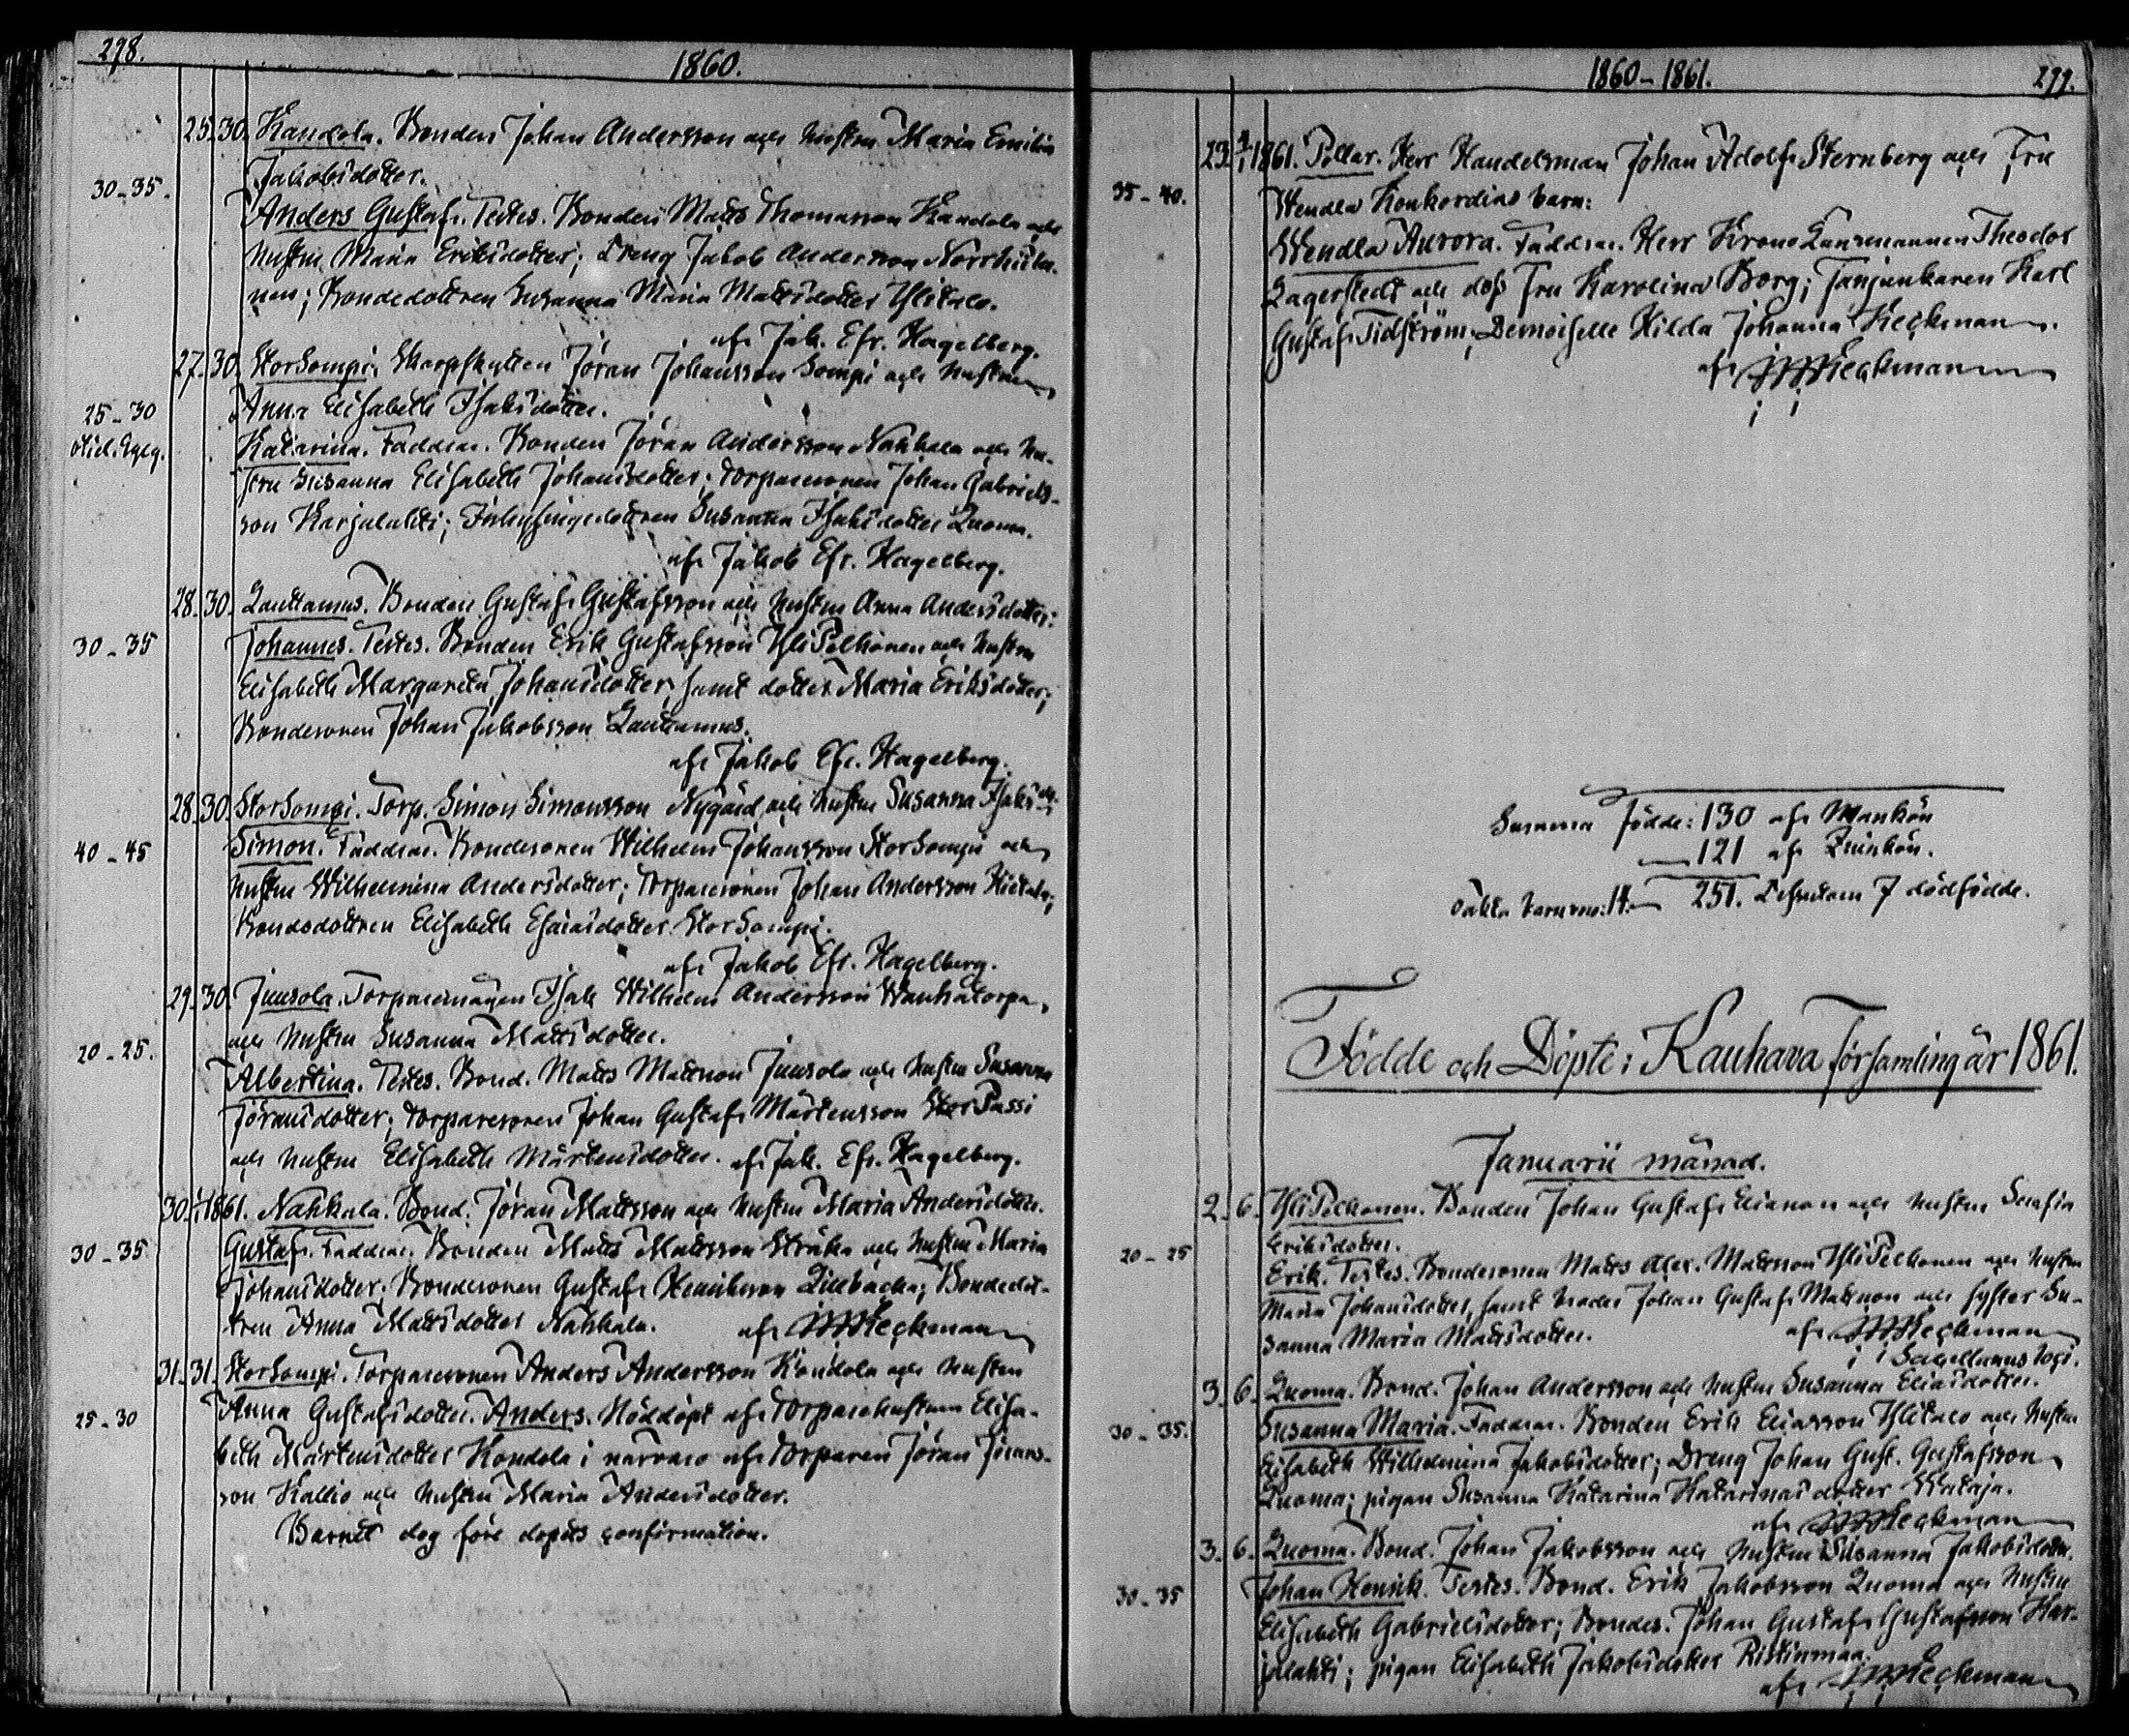 298.
1860.
25. 30. Kandola. Bonden Johan Andersson och hustru Maria Emilia
Jakobsdotter.
30-35.
Anders Gustaf. Testes. Bonden Matts Thomasson Kandola och
hustru Maria Eriksdotter; Dreng Jakob Andersson
nen; Bondedottren Susanna Maria Mattsdotter Ylitalo.
af Jak. Efr. Hagelberg.
27. 30. StorSompi. Skarpskytten Jöran Johansson Sompi och hustru
25-30
Anna Elisabeth Isaksdotter.
Katarina. Faddrar. Bonden Jöran Andersson Nahkala och hu-
stru Susanna Elisabeth Johansdotter; Torparesonen Johan Gabriels-
son Karjalahti; Inhysingedottren Susanna Isaksdotter Luoma.
af Jakob Efr. Hagelberg.
28. 30. Lauttamus. Bonden Gustaf Gustafsson och hustru Anna Andersdotter:
30-35
Johannes. Testes. Bonden Erik Gustafsson YliPelkonen och hustru
Elisabeth Margareta Johansdotter, samt dotter Maria Eriksdotter;
Bondesonen Johan Jakobsson Lauttamus.
af Jakob Efr. Hagelberg.
28. 30. StorSompi. Torp. Simon Simonsson Nygård och hustru Susanna Isaksdr.
40-45
Simon. Faddrar. Bondesonen Wilhelm Johansson StorSompi och
hustru Wilhelmina Andersdotter; Torparesonen Johan Andersson Hietala;
Bondedottren Elisabeth Esaiasdotter StorSompi.
af Jakob Efr. Hagelberg.
29. 30. Juusola. Torparemågen Isak Wilhelm Andersson Wanhatorpa,
och hustru Susanna Mattsdotter.
20-25.
Albertina. Testes. Bond. Matts Mattsson Juusola och hustru Susanna
Jöransdotter; Torparesonen Johan Gustaf Mårtensson StorPassi
och hustru Elisabeth Mårtensdotter. af Jak. Efr. Hagelberg.
30. 1/1 1861. Nahkala. Bond. Jöran Mattsson och hustru Maria Andersdotter.
30-35
Gustaf. Faddrar. Bonden Matts Mattsson Stråka och hustru Maria
Johansdotter; Bondesonen Gustaf Henriksson Lillbacka; Bondedot-
tren Anna Mattsdotter Nahkala. af Heckman
31. 31. StorSompi. Torparesonen Anders Andersson Kondola och hustru
25-30
Anna Gustafsdotter. Anders. Nöddöpt af Torparehustrun Elisa-
beth Mårtensdotter Kondola i närvaro af Torparen Jöran Jörans-
son Kallio och hustru Maria Andersdotter.
Barnet dog före dopets confirmation.
1860-1861.
299.
23. 1861. Pollar. Herr Handelsman Johan Adolf Sternberg och Fru
35-40.
Wendla Konkordias barn:
Wendla Aurora. Faddrar. Herr KronoLänsmannen Theodor
Lagerstedt och dess Fru Karolina Borg; Fanjunkaren Karl
Gustaf Tidström; Demoiselle Hilda Johanna Heckman.
af Heckman
Summa födde: 130 af Mankön
121 af Quinkön.
Oäkta barnens: 14. 251. Dessutom 7 dödfödde.
Födde och Döpte i Kauhava Församling år 1861.
Januarii månad.
2. 6. YliPelkonen. Bonden Johan Gustaf Eliasson och hustru Serafia
Eriksdotter.
20-25
Erik. Testes. Bondesonen Matts Alex. Mattsson YliPelkonen och hustru
Maria Johansdotter, samt broder Johan Gustaf Mattsson och syster Su-
sanna Maria Mattsdotter. af Heckman
Sacellanus loci.
3. 6. Luoma. Bond. Johan Andersson och hustru Susanna Eliasdotter.
30-35.
Susanna Maria. Faddrar. Bonden Erik Eliasson Ylitalo och hustru
Elisabeth Wilhelmina Jakobsdotter; Dreng Johan Gust. Gustafsson
Luoma; pigan Susanna Katarina Katarinasdotter Wataja.
af Heckman
3. 6. Luoma. Bond. Johan Jakobsson och hustru Susanna Jakobsdotter.
30-35
Johan Henrik. Testes. Bond. Erik Jakobsson Luoma och hustru
Elisabeth Gabrielsdotter; Bondes. Johan Gustaf Gustafsson Kar-
jalahti; pigan Elisabeth Jakobsdotter Ristinmaa.
af Heckman